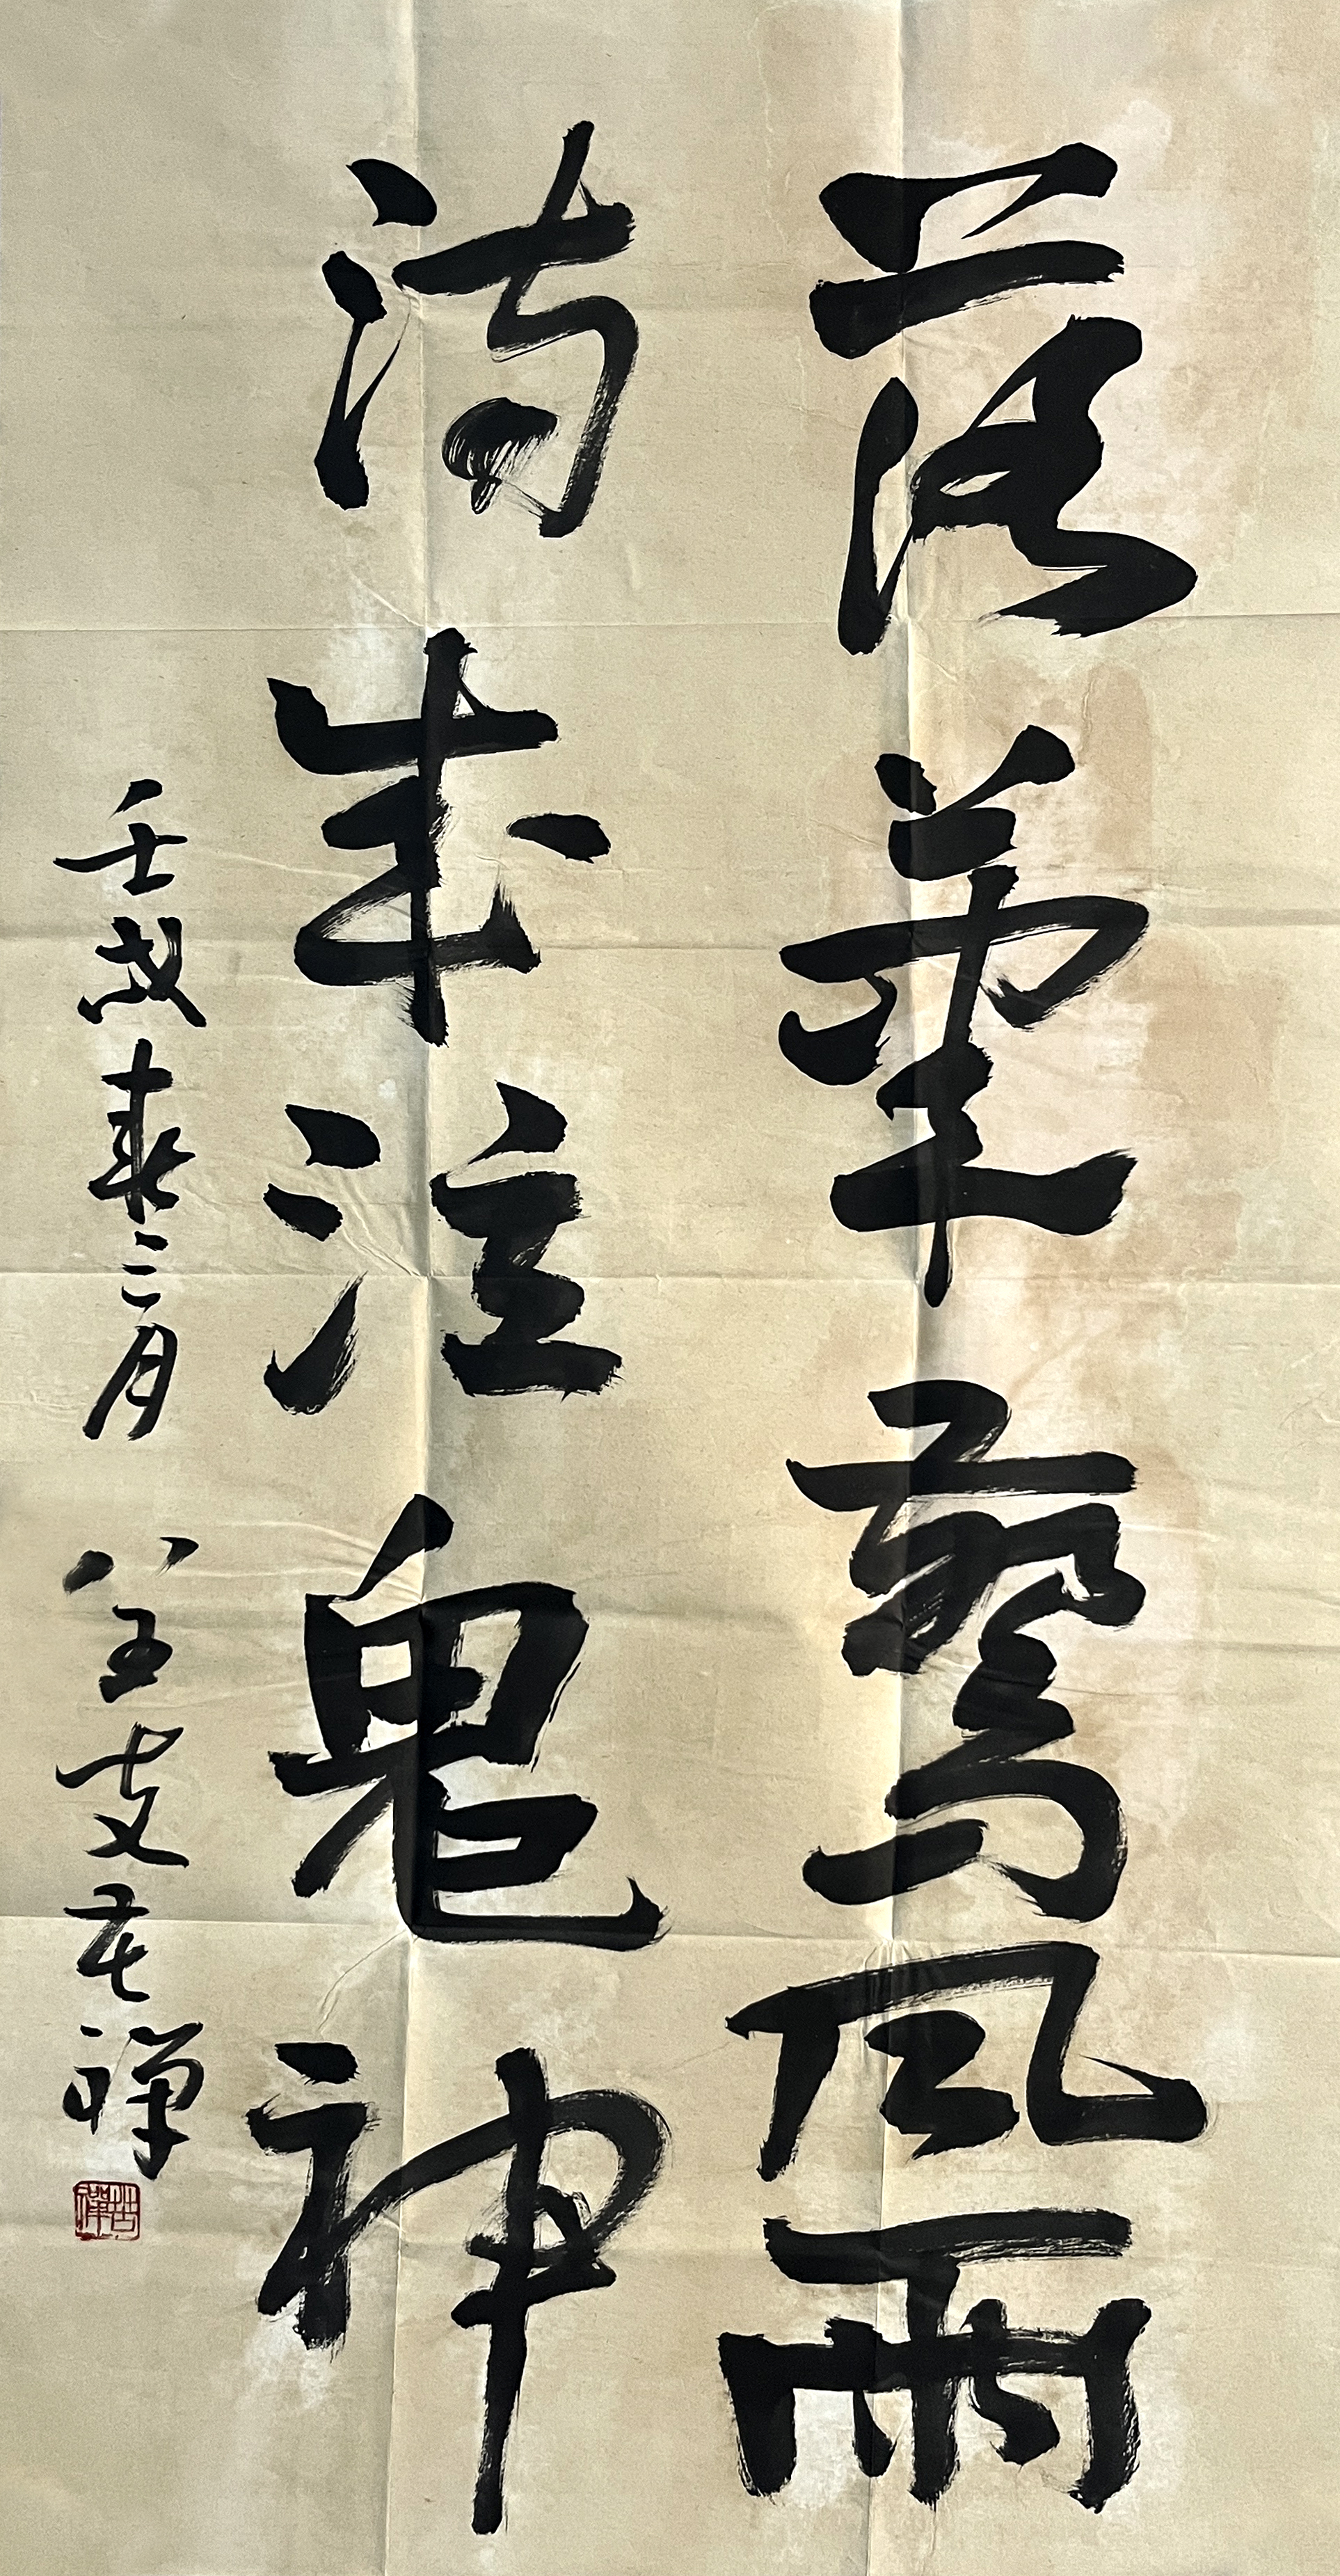 落筆驚風雨
詩成泣鬼神
壬戌春三月 八五叟苦禪
苦禪